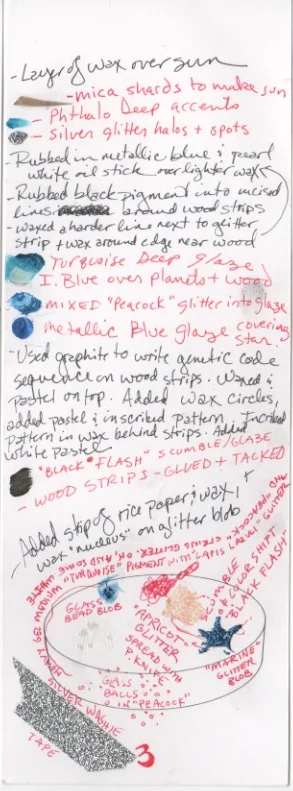 - Layer of wax over sun
- mica shards to make sun
- Phthalo Deep accents
- silver glitter halos + spots
- Rubbed in metallic blue & pearl
white oil stick over lighter wax
- Rubbed black pigment into incised
lines around wood strips
- waxed a harder line next to glitter
strip + wax around edge near wood
Turquoise Deep glaze
I. Blue over planets + wood
mixed "Peacock" glitter into glaze
metallic Blue glaze covering
star.
- Used graphite to write genetic code
sequence on wood strips. Waxed &
pastel on top. Added wax circles,
added pastel & inscribed pattern. Incribed
pattern in wax behind strips. Added
white pastel
"BLACK" FLASH" SCUMBLE/GLAZE
- WOOD STRIPS - GLUED + TACKED
- Added strip of rice paper, wax, +
wax "nucleus" on glitter blob
HEAVY GEL MEDIUM "TURQUOISE" PIGMENT WITH "LAPIS LAZULI" GLITTER
GLITTER, OK, AND SOME WHITE
AND "PEACOCK"
GLASS
BEAD BLOB
"APRICOT"
GLITTER
SPREAD WITH
P. KNIFE
COLOR SHIFT
BLACK FLASH"
"MARINE"
GLITTER
BLOB
GLASS
BALLS
IN "PEACOCK"
SILVER WASHIE
TAPE
3